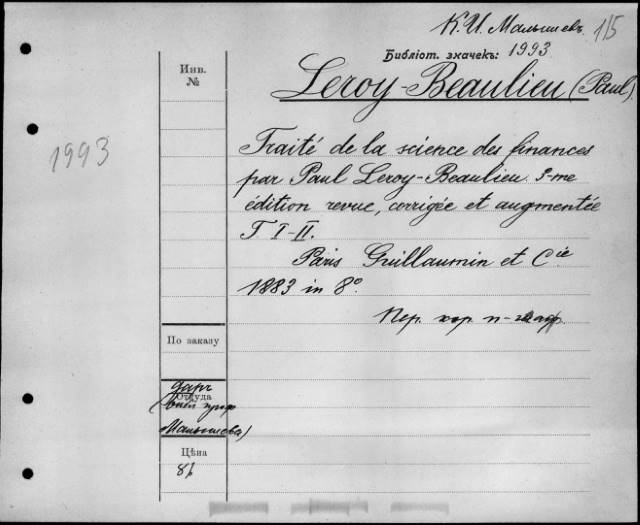 К. И. Малышевъ. 115
Библіот. значекъ: 1993
Инв.
№
Leroy-Beaulieu (Paul).
1993
Traité de la science des finances
par Paul Leroy-Beaulieu. 3-me
édition revue, corrigée et augmentée
T I-II.
Paris Guillaumin et Cie
1883 in 8°.
Пер. кор.
По заказу
Откуда
даръ
Малышева)
Цѣна